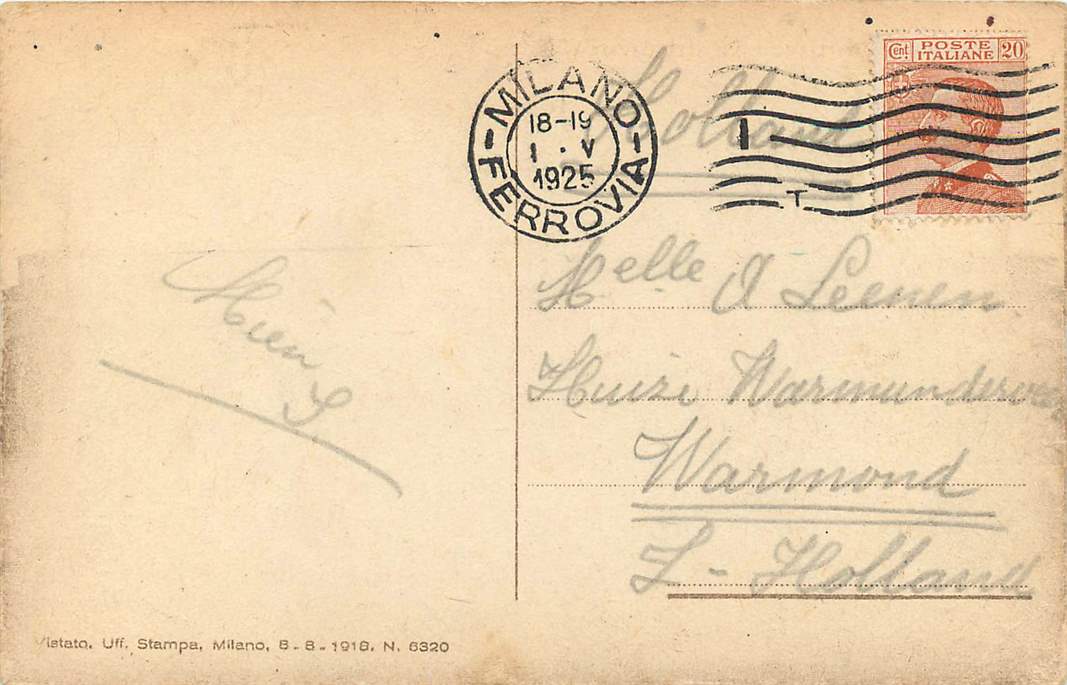 MILANO
18-19
1 · V
1925
FERROVIA
T
Cent. POSTE ITALIANE 20
Holland
Melle A Leenen
Huize Warmunda
Warmond
Z - Holland
Mien L.
Vistato, Uff. Stampa, Milano, 8-8-1918. N. 6320